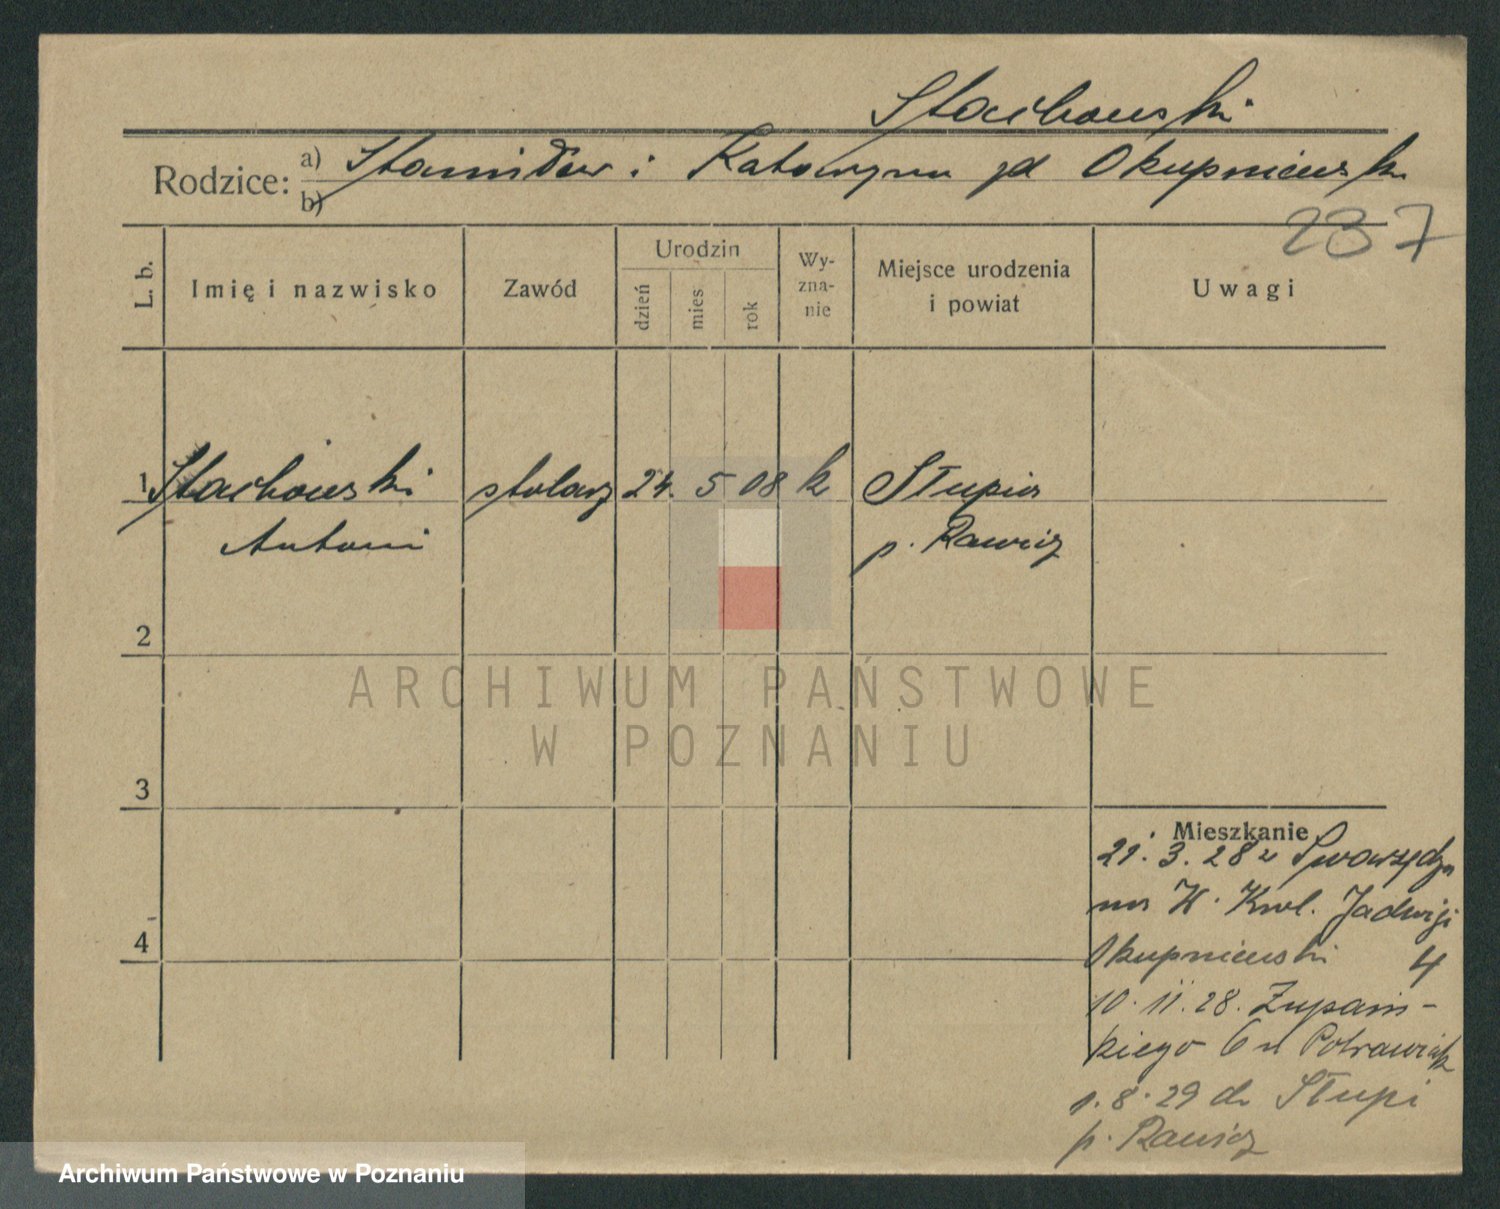 Stachowski
Rodzice: a) Stanisław i Katarzyna zd Okupniewska
b)
237
L. b. Imię i nazwisko Zawód Urodzin dzień mies rok Wyznanie Miejsce urodzenia i powiat Uwagi
1 Stachowski stolarz 24. 5 08 k Słupia
Antoni p. Rawicz
2
ARCHIWUM PAŃSTWOWE
W POZNANIU
3
Mieszkanie
21. 3. 28 z Swarzędza
na W. Krol. Jadwigi
4
Okupniewski 4
10. 11. 28. Żupańs-
kiego 6 u Potrawiak
1. 8. 29 do Słupi
p. Rawicz
Archiwum Państwowe w Poznaniu